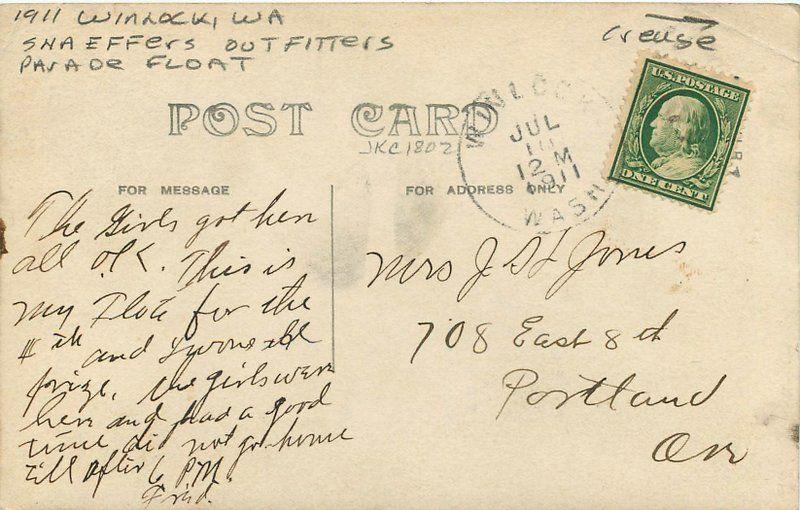 1911 WINLOCK, WA
SHAEFFERS OUTFITTERS
PARADE FLOAT
crease
U.S. POSTAGE
ONE CENT
POST CARD
JKC1802
WINLOCK
JUL
10
12 M
1911
WASH
FOR MESSAGE
FOR ADDRESS ONLY
The Girls got her
all O.K. This is
my Float for the
4th and I won
prize, the girls were
her and had a good
time did not go home
till after 6 PM.
Fred.
Mrs J Jones
708 East 8th
Portland
Ore